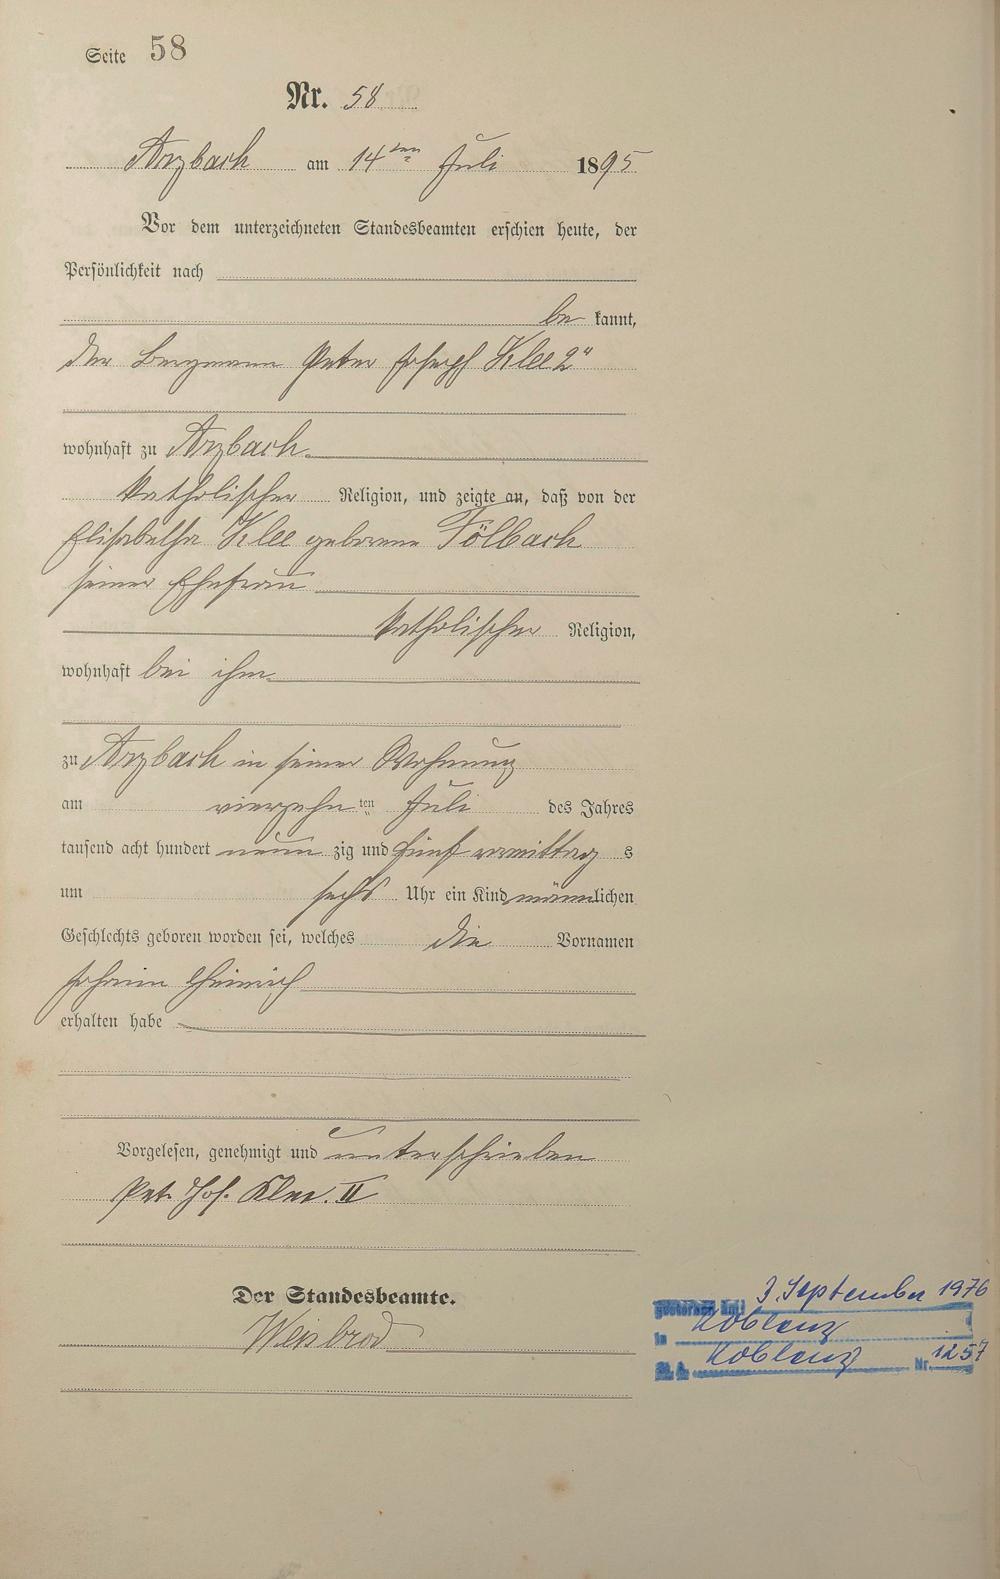 Seite 58
Nr. 58
Arzbach am 14ten Juli 1895
Vor dem unterzeichneten Standesbeamten erschien heute, der
Persönlichkeit nach
be kannt,
der Bergmann Peter Joseph Klee 2r
wohnhaft zu Arzbach
katholischer Religion, und zeigte an, daß von der
Elisabetha Klee geborene Fölbach
seiner Ehefrau
katholischer Religion,
wohnhaft bei ihm
zu Arzbach in seiner Wohnung
am vierzehnten Juli des Jahres
tausend acht hundert neun zig und fünf vormittag s
um sechs Uhr ein Kind männlichen
Geschlechts geboren worden sei, welches die Vornamen
Johann Heinrich
erhalten habe
Vorgelesen, genehmigt und unterschrieben
Pet. Jos. Klee. II
Der Standesbeamte.
Weisbrod
3. September 1976
gestorben am:
in Koblenz
St. A. Koblenz Nr. 1257